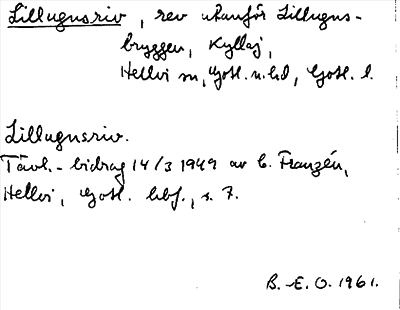 Lillugnsriv, rev utanför Lillugns-
bryggen, Kyllaj,
Hellvi sn, Gotl. n. hd, Gotl. l.
Lillugnsriv.
Tävl.-bidrag 14/3 1949 av C. Franzén,
Hellvi, Gotl. hbf., s. 7.
B. E. O. 1961.